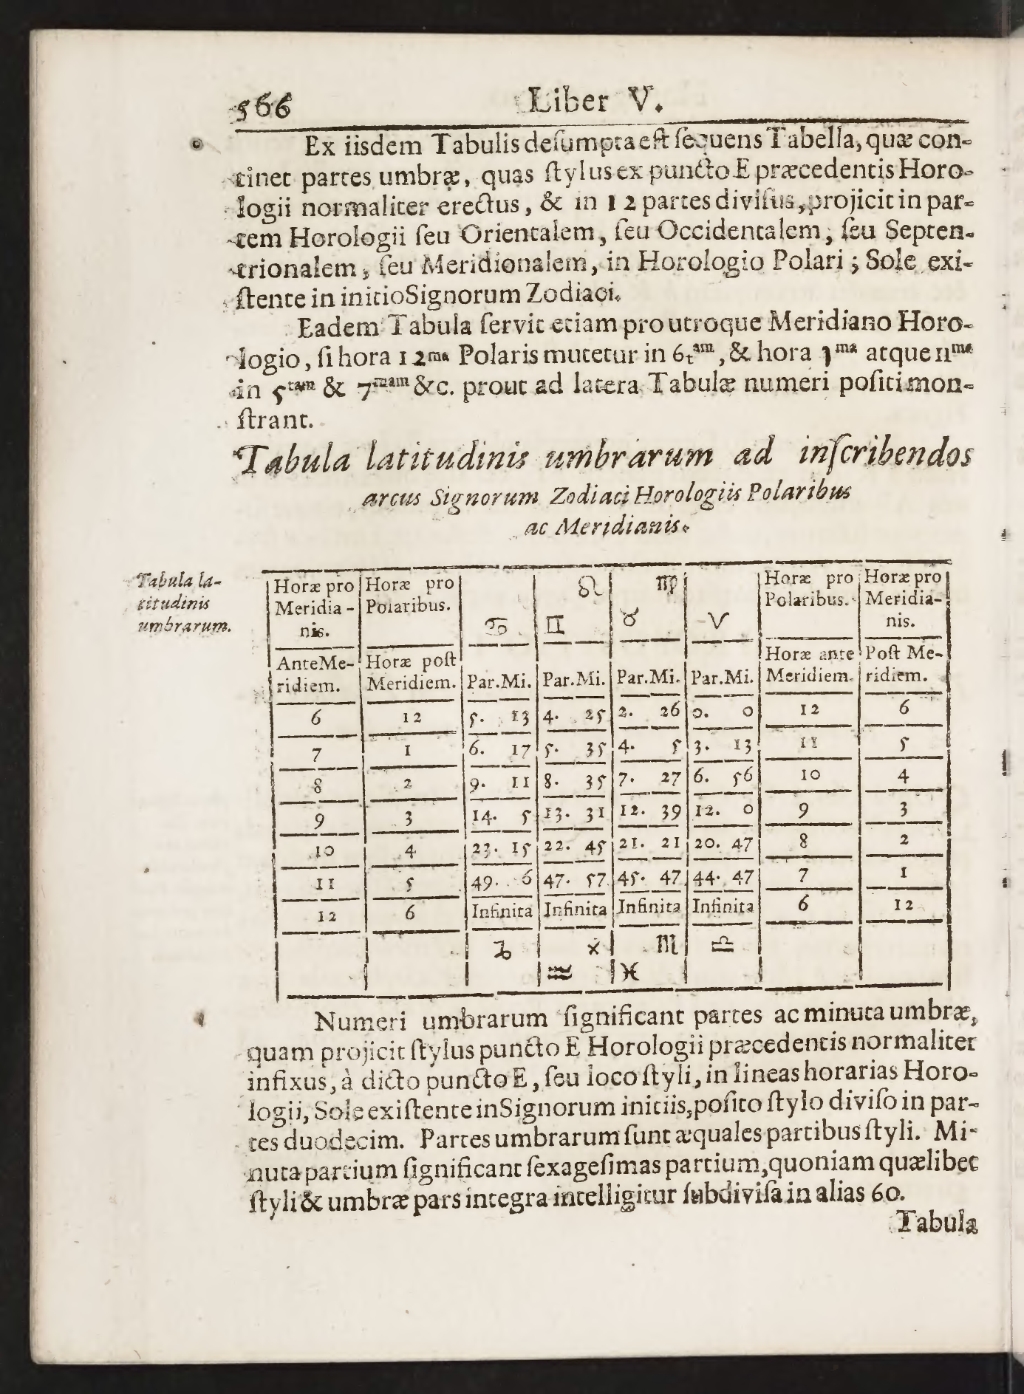 566 Liber V.
Ex iisdem Tabulis desumpta est sequens Tabella, quæ con-
tinet partes umbræ, quas stylus ex puncto E præcedentis Horo-
logii normaliter erectus, & in 12 partes divisus, projicit in par-
tem Horologii seu Orientalem, seu Occidentalem, seu Septen-
trionalem, seu Meridionalem, in Horologio Polari; Sole exi-
stente in initio Signorum Zodiaci.
Eadem Tabula servit etiam pro utroque Meridiano Horo-
logio, si hora 12ma Polaris mutetur in 6tam, & hora 1ma atque 11ma
in 5tam & 7mam &c. prout ad latera Tabulæ numeri positi mon-
strant.
Tabula latitudinis umbrarum ad inscribendos
arcus Signorum Zodiaci Horologiis Polaribus
ac Meridianis.
Tabula la-
titudinis
umbrarum.
Horæ pro Meridia-nis. | Horæ pro Polaribus. | ♋ | ♊ ♌ | ♉ ♍ | ♈ | Horæ pro Polaribus. | Horæ pro Meridia-nis.
Ante Me-ridiem. | Horæ post Meridiem. | Par. Mi. | Par. Mi. | Par. Mi. | Par. Mi. | Horæ ante Meridiem. | Post Me-ridiem.
6 | 12 | 5. 13 | 4. 25 | 2. 26 | 0. 0 | 12 | 6
7 | 1 | 6. 17 | 5. 35 | 4. 5 | 3. 13 | 11 | 5
8 | 2 | 9. 11 | 8. 35 | 7. 27 | 6. 56 | 10 | 4
9 | 3 | 14. 5 | 13. 31 | 12. 39 | 12. 0 | 9 | 3
10 | 4 | 23. 15 | 22. 45 | 21. 21 | 20. 47 | 8 | 2
11 | 5 | 49. 6 | 47. 57 | 45. 47 | 44. 47 | 7 | 1
12 | 6 | Infinita | Infinita | Infinita | Infinita | 6 | 12
♑ | ♒ ♐ | ♓ ♏ | ♎
Numeri umbrarum significant partes ac minuta umbræ,
quam projicit stylus puncto E Horologii præcedentis normaliter
infixus, à dicto puncto E, seu loco styli, in lineas horarias Horo-
logii, Sole existente in Signorum initiis, posito stylo diviso in par-
tes duodecim. Partes umbrarum sunt æquales partibus styli. Mi-
nuta partium significant sexagesimas partium, quoniam quælibet
styli & umbræ pars integra intelligitur subdivisa in alias 60.
Tabula